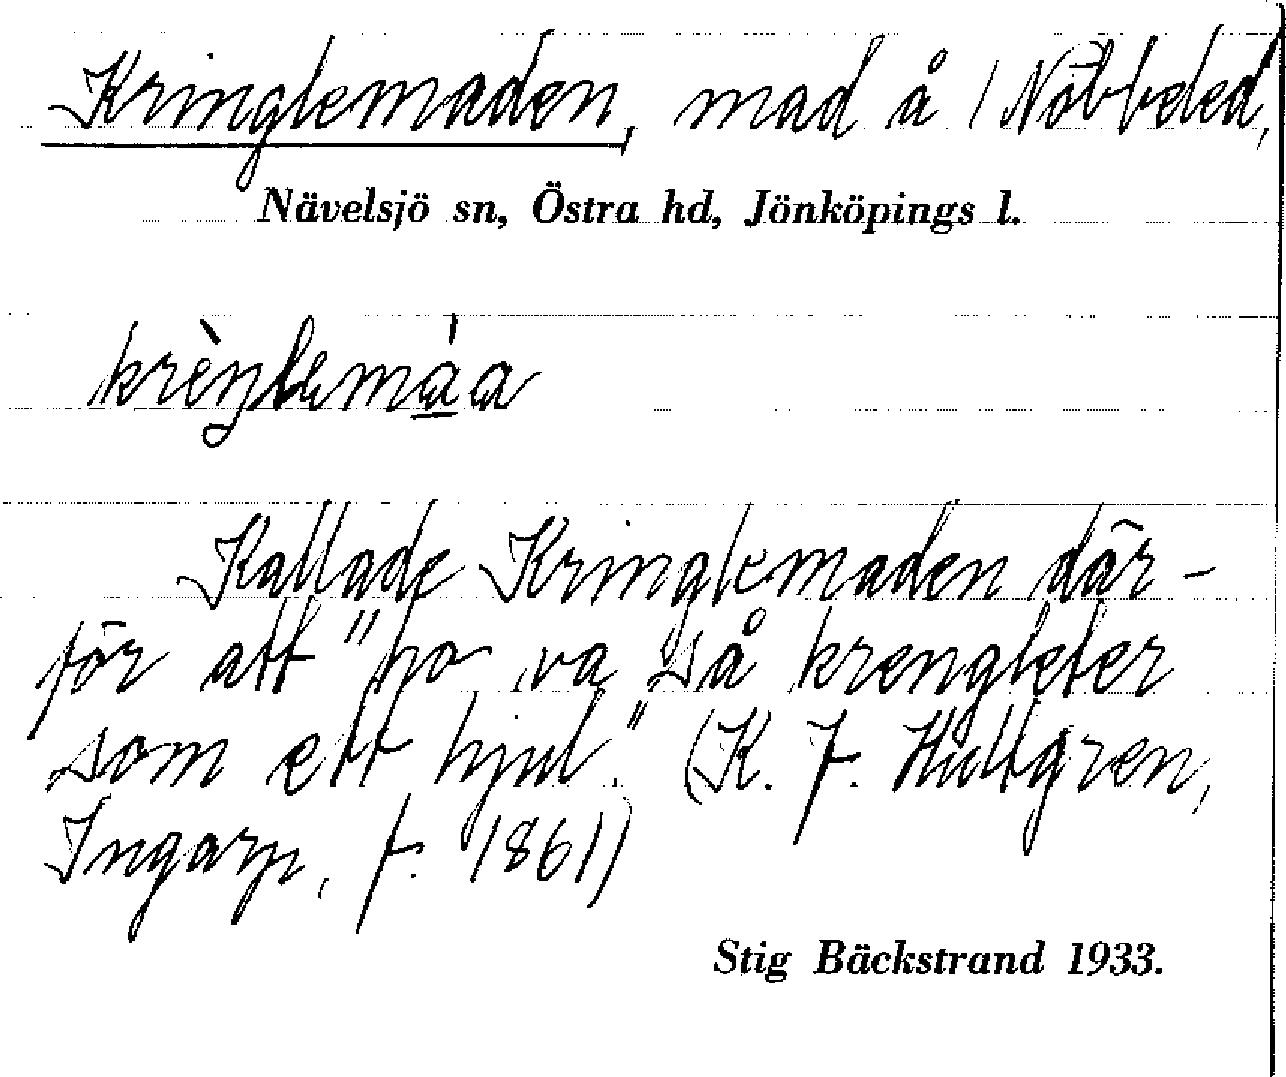 Kringlemaden, mad å 1 Nöbbeled,
Nävelsjö sn, Östra hd, Jönköpings l.
krèŋlemáa
Kallade Kringlemaden där-
för att "ho va så krengleter
som ett hjul." (K. J. Hultgren,
Ingarp, f. 1861)
Stig Bäckstrand 1933.